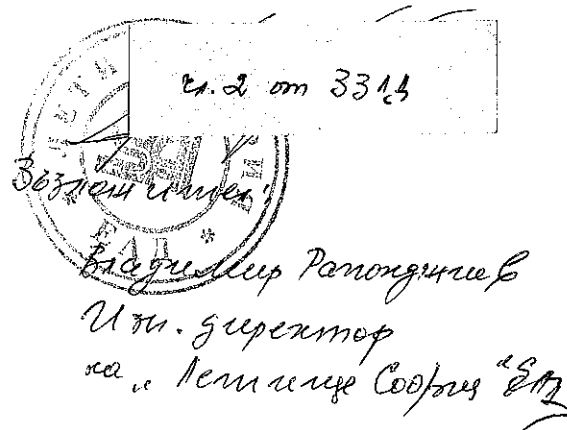 чл. 2 от ЗЗЛД
Възложител:
Владимир Рапонджиев
Изп. директор
на „Летище София" ЕАД
ЕАД